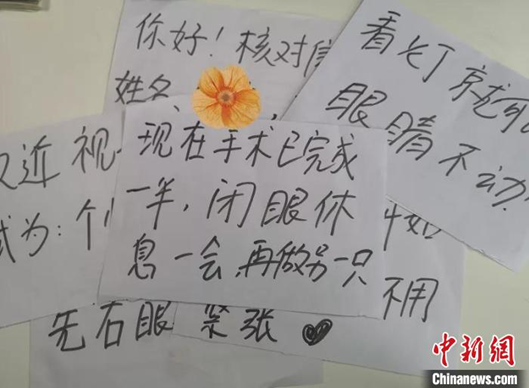 你好！核对信
姓名、
看灯就可
眼睛不动
近视
试为：个
现在手术已完成
一半，闭眼休
息一会，再做另一只
不用
先右眼
紧张
中新网
Chinanews.com